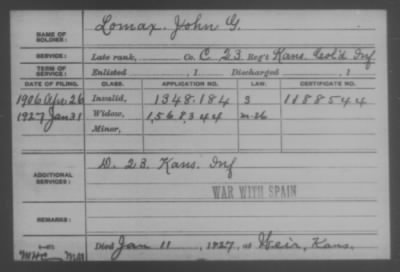 NAME OF SOLDIER: Lomax, John G.
SERVICE: Late rank, Co. C 23 Reg't Kans. Col'd Inf
TERM OF SERVICE: Enlisted , 1 Discharged , 1
DATE OF FILING. CLASS. APPLICATION NO. LAW. CERTIFICATE NO.
1906 Apr 26 Invalid, 1348,184 3 1188544
1927 Jan 31 Widow, 1,568,344 m-26
Minor,
ADDITIONAL SERVICES: D. 23. Kans. Inf
WAR WITH SPAIN
REMARKS:
Died Jan 11, 1927, at Weir, Kans.